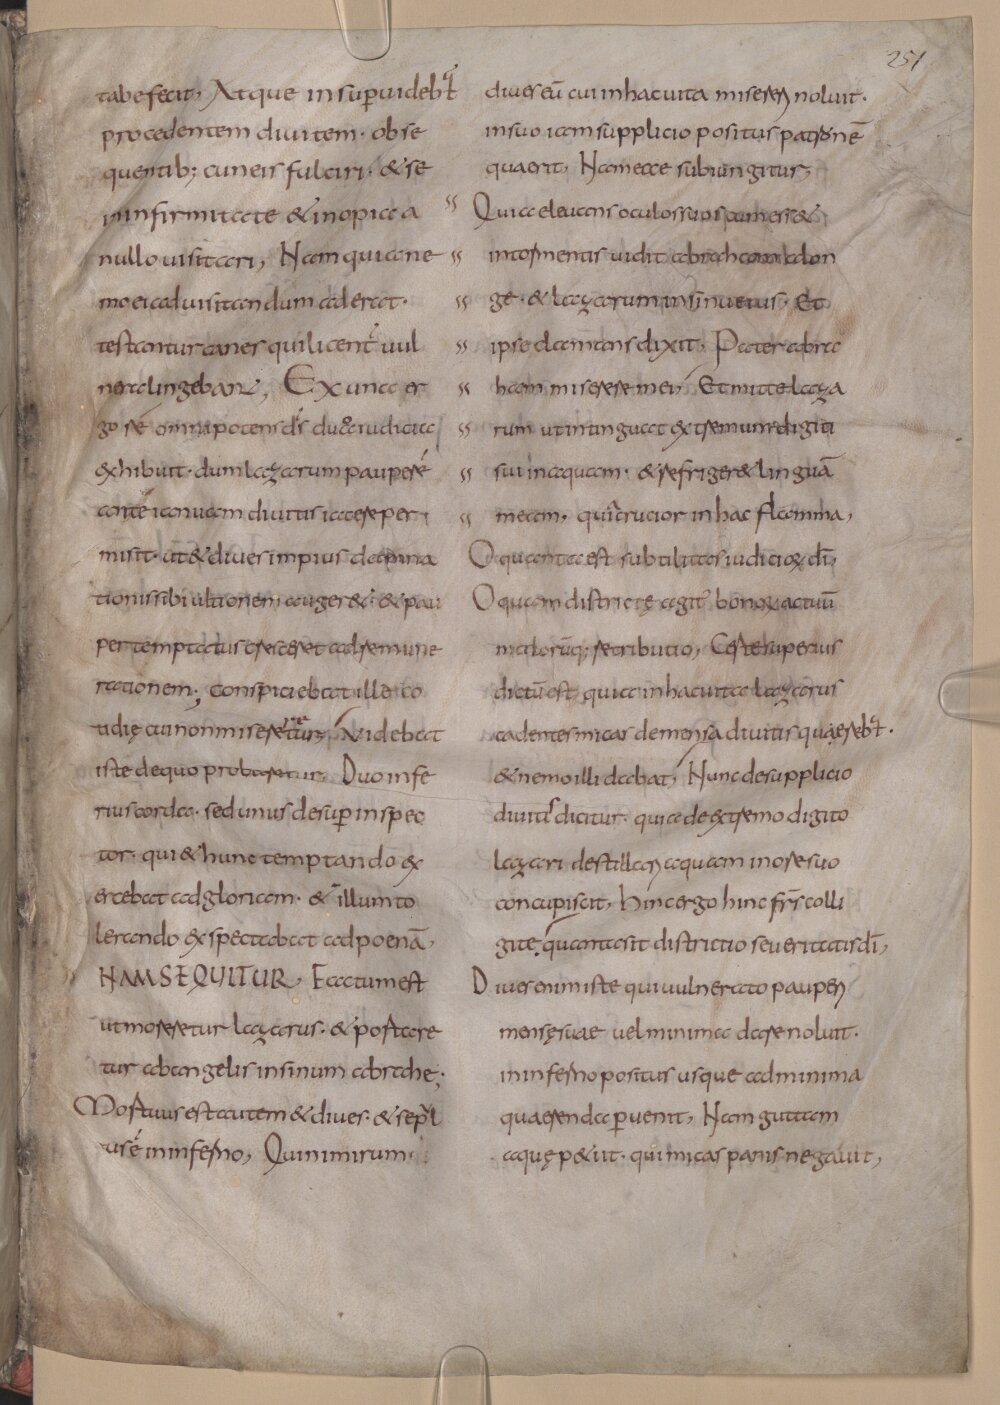 251
tabefecit, Atque insup̄uidebat̄
procedentem diuitem· obse
quentib; cuneis fulciri· & se
ininfirmitate & inopia a
nullo uisitari, Nam quia ne
mo ei aduisitandum aderat·
testantur canes qui licent̄ uul
nera lingebant, Ex una er
go rē omnipotens dꝭ duo iudicia
exhibuit· dum lazarum pauperē
antē ianuam diuitis iacere per
misit· ut & diues impius damna
tionis sibi ultionem auger&· & pau
per temptatus cresceret ad remune
rationem; Conspiciebat ille co
tidię cui non misereretur, Videbat
iste de quo probaretur, Duo infe
rius corda· sed unus desup̄ inspec
tor· qui & hunc temptando ex
ercebat ad gloriam· & illum to
lerando exspectabat ad poenā,
NAM SEQUITUR, Factum est
ut moreretur lazarus· & portare
tur ab angelis in sinum abrahę;
Mortuus est autem & diues· & sepul
tus ē in inferno, Qui nimirum·
diues eū cui in hac uita misereri noluit·
in suo iam supplicio positus patronē
quaerit, Nam ecce subiungitur,
Qui a eleuans oculos suos cum ess&
in tormentis uidit abraham alon
ge· & lazarum in sinu eius· Et
ipse clamans dixit, Pater abra
ham miserere mei, Et mitte laza
rum ut intinguat extremum digiti
sui in aquam· & refriger& linguā
meam, quia crucior in hac flamma,
O quanta est subtilitas iudicioꝝ dī,
O quam districtę agit̄ bonoꝝ actuū
malorūq; retributio, Certe superius
dictū est, quia in hac uita lazarus
cadentes micas de mensa diuitis quaerebat̄·
& nemo illi dabat, Nunc de supplicio
diuitis dicitur· quia de extremo digito
lazari destillari aquam in ore suo
concupiscit, hinc ergo hinc frs̄ colli
gite, quanta sit districtio seueritatis dī,
Diues enim iste qui uulnerato pauperi
mensę suae uel minima dare noluit·
in inferno positus usque ad minima
quaerenda p̄uenit, Nam guttam
aquę p&iit· qui micas panis negauit,